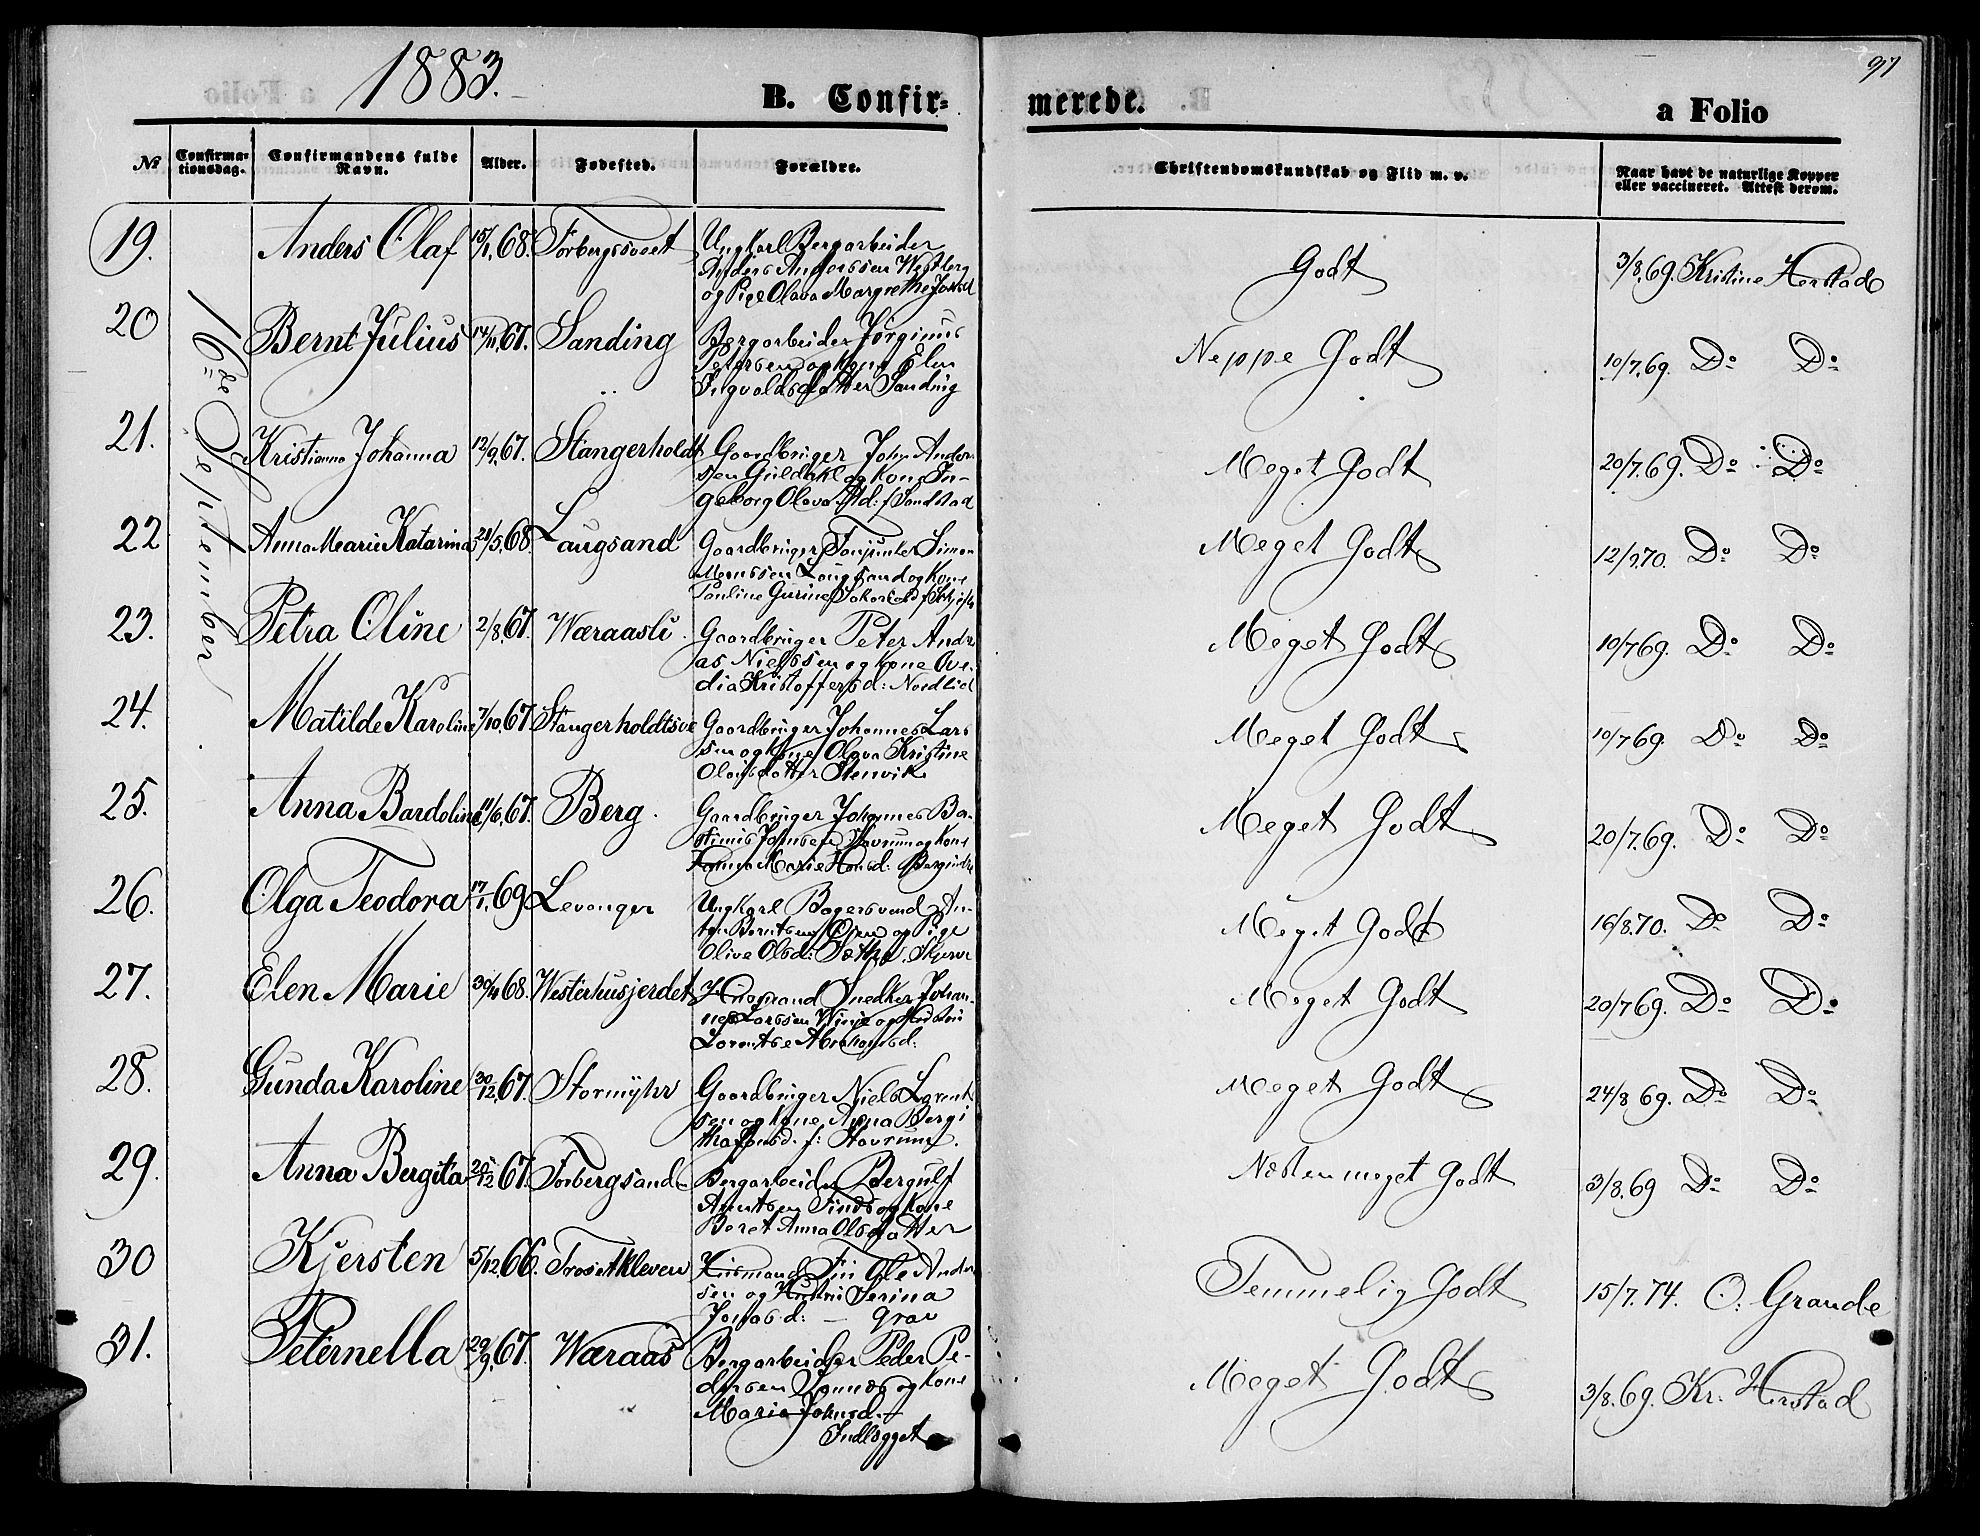 1883.
97
B. Confirmerede.
a Folio
No
Confirmationsdag.
Confirmandens fulde Navn.
Alder.
Fødested.
Forældre.
Christendomskundskab og Flid m. v.
Naar havt de naturlige Kopper eller vaccineret. Attest derom.
16de September
19. Anders Olaf 15/1,68. Forbergsveet
Ungkarl Bergarbeider
Anders Anderssen Westberg
og Pige Olava Margrethe
Godt 3/8,69. Kristine Herstad
20 Bernt Julius 14/11,67. Sanding
Bergarbeider Jørginus
Petersen og Kone Elen
Ingvaldsdatter Sanding
Neppe Godt 10/7,69. Do Do
21. Kristianna Johanna 12/9,67. Stangerholdt
Gaardbruger John Ander
sen Guldahl og Kone In-
geborg Olava Old: f Sandstad
Meget Godt 20/7.69. Do Do
22 Anna Marie Katarina 21/5,68 Laugsand
Gaardbruger Simon
Monssen Laugsand og Kone
Pauline Gurine
Meget Godt 12/9,70. Do Do
23. Petra Oline 2/8,67. Wæraasli
Gaardbruger Peter Andr
as Nielssen og Kone Ove-
dia Kristoffersd: Nordlid
Meget Godt 10/7 69. Do Do
24. Matilde Karoline 7/10,67. Stangerholdtsve
Gaardbruger Johannes Lars
sen og Kone Olava Kristine
Olausdatter Stenvik
Meget Godt 10/7 69. Do Do
25. Anna Bardoline 11/6,67. Berg.
Gaardbruger Johannes Ba-
stinus Johnsen Stavrum og Kone
Hanna Marie Hansd:
Meget Godt 20/7.69. Do Do
26. Olga Teodora 17/1,69 Levanger
Ungkarl Bagersvend An-
ton Berntsen Øren og Pige
Olive Olsd: Sæther, Skjerve
Meget Godt 16/8.70. Do Do
27. Elen Marie 30/4 68. Westerhusjerdet
Husmand Snedker Johan-
nes Larssen Winje og Hustru
Lorentse Abrahamsd:
Meget Godt 20/7 69. Do Do
28. Gunda Karoline 30/12,67. Stormyhr
Gaardbruger Niels Lorent
sen og Kone Anna Bergi
tha Jonsd. f: Stavrum.
Meget Godt 24/8 69. Do Do
29. Anna Bergita 25/12 67. Forbergsand
Bergarbeider Bergulf
Arntsen Sinds og Kone
Beret Anna Olsdatter
Næsten meget Godt 3/8.69 Do Do
30 Kjersten 5/12,66. Trosetkleven
Husmand Fin Ole Ander
sen og Hustru Serina
Jonasd: — Grav
Temmelig Godt 15/7.74. O: Grande
31. Peternella 29/9,67. Wæraas
Bergarbeider Peder Pe-
dersen Sonnæs og Kone
Maria Johnsd. —
Indlægget
Meget Godt 3/8.69. Kr. Herstad